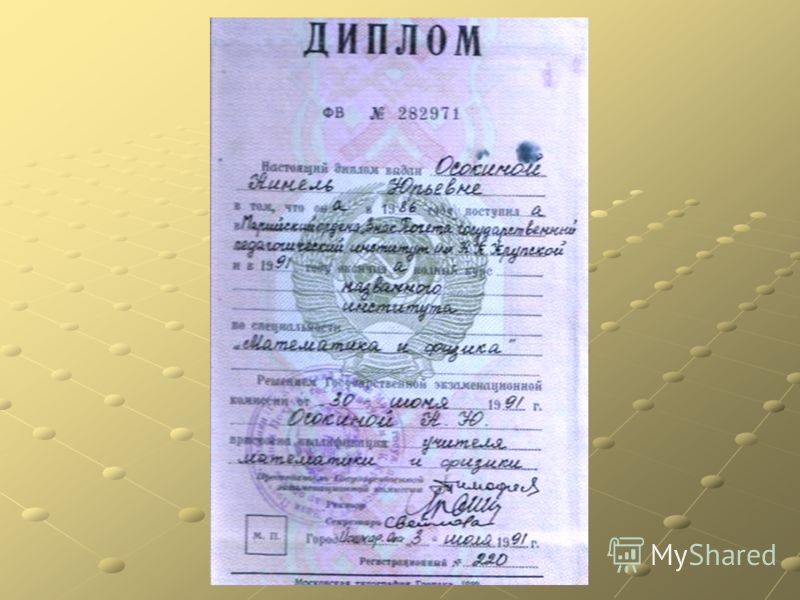 ДИПЛОМ
ФВ № 282971
Настоящий диплом выдан Осокиной
Нинель Юрьевне
в том, что он а в 1986 году поступил а
в Марийский ордена Знак Почета государственный
педагогический институт им. Н.К. Крупской
и в 1991 году окончил а полный курс
названного
института
по специальности
„Математика и физика"
Решением Государственной экзаменационной
комиссии от 30 июня 1991 г.
Осокиной Н. Ю.
присвоена квалификация учителя
математики и физики
Председатель Государственной
экзаменационной комиссии
Ректор
Секретарь
М. П.
Город Йошкар-Ола 3 июля 1991 г.
Регистрационный № 220
Московская типография Гознака.
MyShared